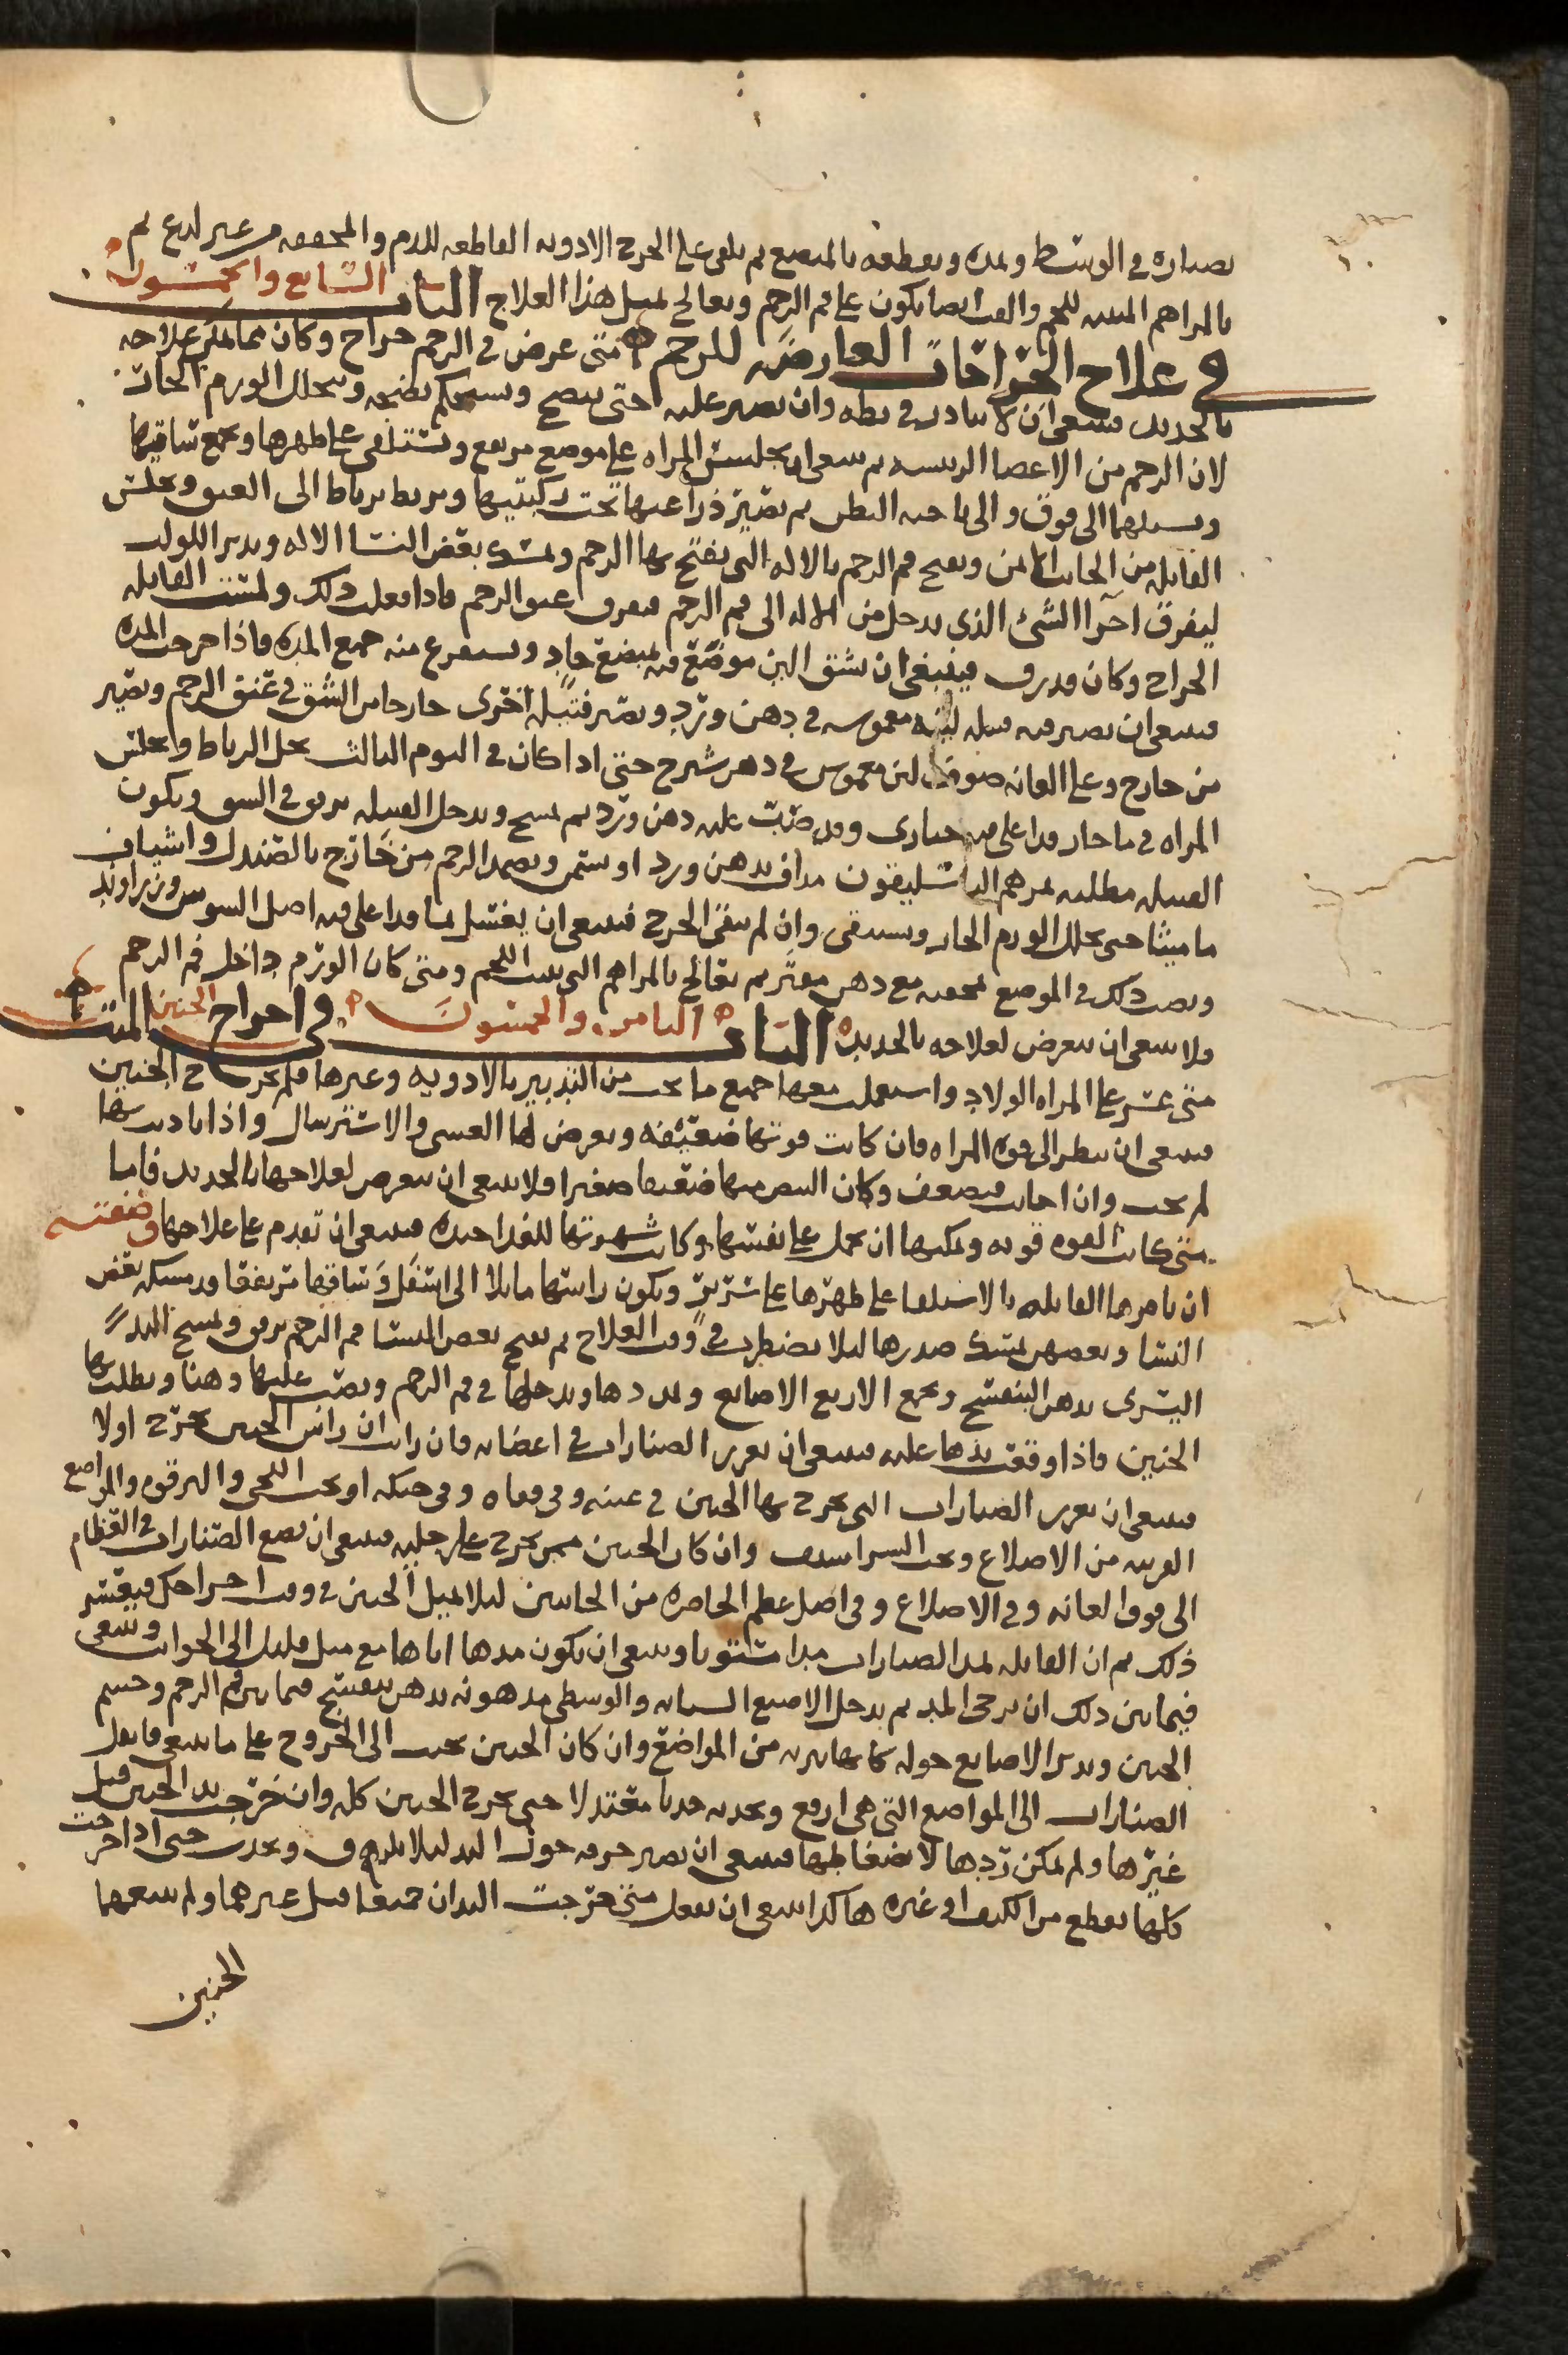 بصناره في الوسط ويمده ويقطعه بالمبضع ثم يلقى على الجرح الادويه القاطعه للدم والمجففه من غير لدغ ثم
بالمراهم المنبته للحم والفتق ايضا يكون على فم الرحم ويعالج بمثل هذا العلاج الباب السابع والخمسون
في علاج الخراجات العارضه للرحم متى عرض في الرحم خراج وكان مما يمكن علاجه
بالحديد فينبغي ان لا يبادر في بطه وان يصبر عليه حتى ينضج ويستحكم نضجه ويتحلل الورم الحاد
لان الرحم من الاعضا الرئيسه ثم ينبغي ان يجلس المراه على موضع مرتفع وتستلقى على ظهرها ويجمع ساقيها
ويشيلهما الى فوق والى ناحيه البطن ثم يصير ذراعيها تحت ركبتيها ويربط برباط الى العنق ويجلس
القابله من الجانب الايمن ويفتح فم الرحم بالاله التي يفتح بها الرحم ويمسك بعض النسا الاله ويدير اللولب
ليفرق اجزا الشئ الذي يدخل من الاله الى فم الرحم فيفرق عنق الرحم فاذا فعلت ذلك ولمست القابله
الخراج وكان قد رق فينبغي ان يشق الين موضع فيه بمبضع حاد ويستفرغ منه جميع المده فاذا خرجت المده
فينبغي ان يصير فيه فتيله لينه مغموسه في دهن ورد ويصير فتيله اخرى خارجا من الشق في عنق الرحم ويصير
من خارج وعلى العانه صوف لين مغموس في دهن شيرج حتى اذا كان في اليوم الثالث يحل الرباط ويجلس
المراه في ما حار قد اغلى فيه خبازى وقد صبت عليه دهن ورد ثم يمسح ويدخل الفتيله برفق في الشق ويكون
الفتيله مطليه بمرهم الباسليقون مداف بدهن ورد او سمن ويضمد الرحم من خارج بالصندل واشياف
ماميثا حتى يتحلل الورم الحار ويستنقى وان لم ينقى الجرح فينبغي ان يغسل بما قد اغلى فيه اصل السوسن وزراوند
ويصب ذلك في الموضع بمحقنه مع دهن ثم يعالج بالمراهم التي ينبت اللحم ومتى كان الورم داخل فم الرحم
فلا ينبغي ان يتعرض لعلاجه بالحديد الباب الثامن والخمسون في اخراج الجنين الميت
متى عسر على المراه الولاد واستعملت معها جميع ما يجب من التدبير بالادويه وغيرها فلم يخرج الجنين
فينبغي ان ينظر الى قوه المراه فان كانت قوتها ضعيفه ويعرض لها الغشى والاسترسال واذا نادت بها
لم تجب وان اجابت فبضعف وكان النبض منها ضعيفا صغيرا فلا ينبغي ان يتعرض لعلاجها بالحديد فاما
متى كانت القوه قويه ويمكنها ان تحمل على نفسها وكانت شهوتها للغدا جيده فينبغي ان تقدم على علاجها وصفته
ان تامرها القابله بالاستلقا على ظهرها على سرير ويكون راسها مايلا الى اسفل وساقها مرتفعا وتمسكه بعض
النسا وبعضهن يمسك صدرها ليلا يضطرب في وقت العلاج ثم يفتح بعض النسا فم الرحم برفق ويمسح اليد
اليسرى بدهن البنفسج ويجمع الاربع الاصابع ويمددها ويدخلها في فم الرحم ويصب عليها دهنا ويطلب بها
الجنين فاذا وقعت يدها عليه فينبغي ان يغرز الصنارات في اعضايه فان رات ان راس الجنين يخرج اولا
فينبغي ان يغرز الصنارات التي يخرج بها الجنين في عينيه وفي قفاه وفي حنكه او تحت اللحى والترقوه والمواضع
القريبه من الاضلاع وتحت الشراسيف وان كان الجنين ممن يخرج على رجليه فينبغي ان يضع الصنارات في العظام
الى فوق العانه وفي الاضلاع وفي اصل عظم الخاصره من الجانبين ليلا يميل الجنين في وقت اخراجك فيعسر
ذلك ثم ان القابله تمد الصنارات مدا مستويا وينبغي ان يكون مدها اياها مع ميل قليل الى الجوانب وينبغي
فيما بين ذلك ان ترخى المد ثم يدخل الاصبع السبابه والوسطى مدهونه بدهن بنفسج فيما بين فم الرحم وجسم
الجنين ويدير الاصابع حوله من المواضع وان كان الجنين يجيب الى الخروج على ما ينبغي فانقل
الصنارات الى المواضع التي هي ارفع ويجذبه جذبا معتدلا حتى يخرج الجنين كله وان خرجت يد الجنين قبل
غيرها ولم يمكن ردها لانضغاطها فينبغي ان يصير خرقه حول اليد ليلا يزلق ويجذب حتى اذا خرجت
كلها يقطع من الكتف او غيره هاكذا ينبغي ان يفعل متى خرجت اليدان جميعا قبل غيرهما ولم يتبعهما
الجنين